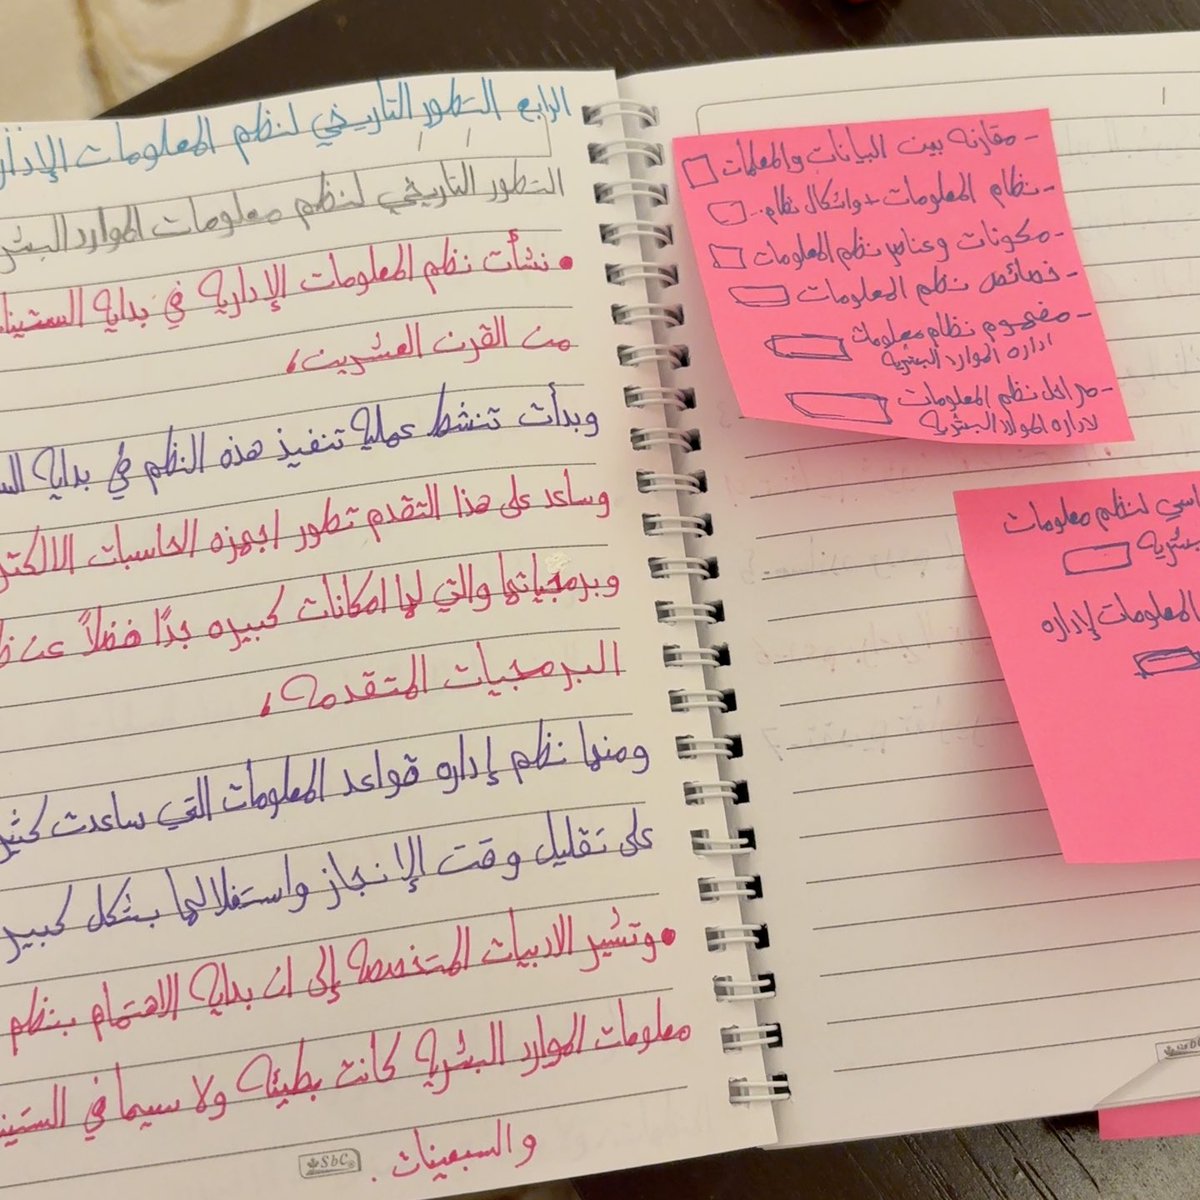 الرابع التطور التأريخي لنظم المعلومات
التطور التاريخي لنظم معلومات الموارد
• نشأت نظم المعلومات الإدارية في بداية
من القرن العشرين،
وبدأت تنشط عملية تنفيذ هذه النظم في بداية
وساعد على هذا التقدم تطور اجهزه الحاسبات
وبرمجياتها والتي لها امكانات كبيره جدًا فضلاً عن
البرمجيات المتقدمه،
ومنها نظم إداره قواعد المعلومات التي ساعدت
على تقليل وقت الإنجاز واستغلالها بشكل كبير
• وتشير الادبيات المتخصصة إلى ان بداية الاهتمام بنظم
معلومات الموارد البشريه كانت بطيئه ولا سيما في
والسبعينات.
SbC
- مقارنه بين البيانات والمعلمات
- نظام المعلومات + واشكال نظام..
- مكونات وعناصر نظم المعلومات
- خصائص نظم المعلومات
- مفهوم نظام معلومات
اداره الموارد البشريه
- مراحل نظم المعلومات
لاداره الموارد البشريه
لنظم معلومات
المعلومات لإداره